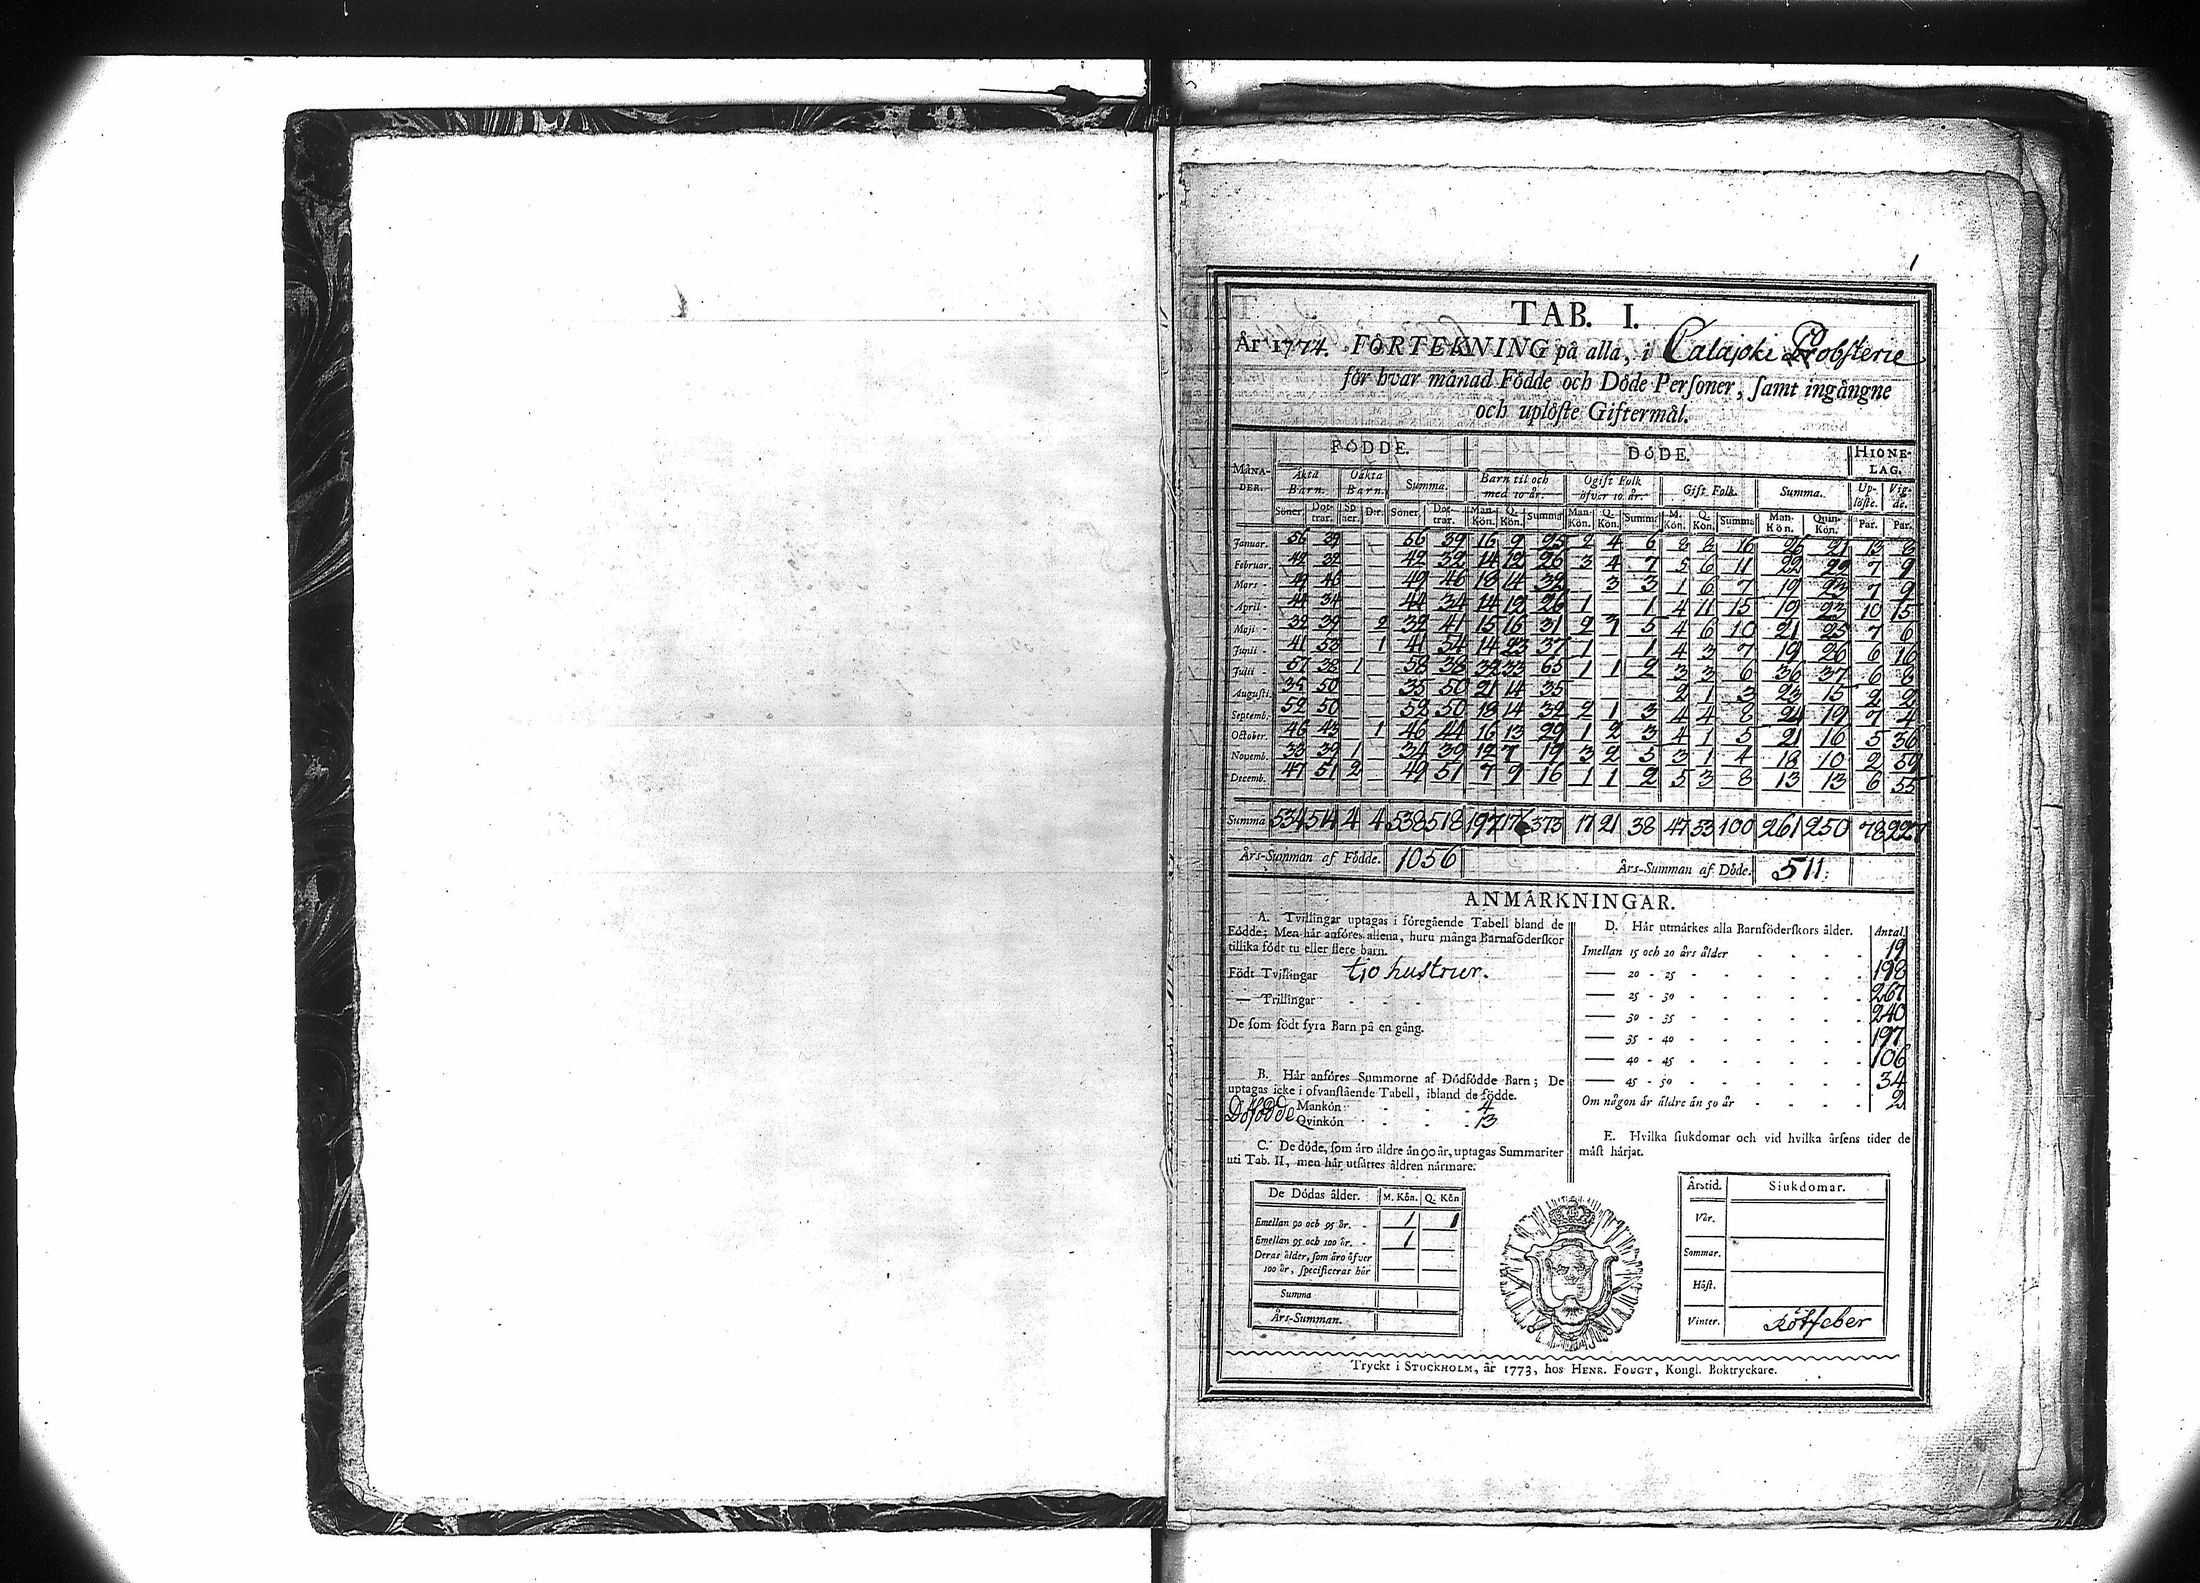 1
TAB. I.
År 1774. FÖRTEKNING på alla, i Calajoki Probsterie
för hvar månad Födde och Döde Personer, samt ingångne
och uplöste Giftermål.
MÅNADER. FÖDDE. DÖDE. HIONELAG.
Äkta Barn. Oäkta Barn. Summa. Barn til och med 10 år. Ogift Folk öfver 10 år. Gift Folk. Summa. Uplöste. Vigde.
Söner Dottrar. Söner. D:r. Söner. Dottrar. Man-Kön. Q. Kön. Summa Man-Kön. Q. Kön. Summa M. Kön. Q. Kön. Summa Man-Kön. Quin-Kön. Par. Par.
Januar. 56 39 56 39 16 9 25 2 4 6 8 8 16 26 21 13 8
Februar. 42 32 42 32 14 12 26 3 4 7 5 6 11 22 22 7 9
Mars 49 46 49 46 18 14 32 3 3 1 6 7 19 23 7 9
April 44 34 44 34 14 12 26 1 1 4 11 15 19 23 10 15
Maji 39 39 2 39 41 15 16 31 2 3 5 4 6 10 21 25 7 6
Junii 41 53 1 41 54 14 23 37 1 1 4 3 7 19 26 6 16
Julii 57 38 1 58 38 32 33 65 1 1 2 3 3 6 36 37 6 8
Augusti. 35 50 35 50 21 14 35 2 1 3 23 15 2 2
Septemb. 52 50 52 50 18 14 32 2 1 3 4 4 8 24 19 7 4
October. 46 43 1 46 44 16 13 29 1 2 3 4 1 5 21 16 5 36
Novemb. 33 39 1 34 39 12 7 19 3 2 5 3 1 4 18 10 2 59
Decemb. 47 51 2 49 51 7 9 16 1 1 2 5 3 8 13 13 6 55
Summa 534 514 4 4 538 518 197 176 373 17 21 38 47 53 100 261 250 78 227
Års-Summan af Födde. 1056 Års-Summan af Döde. 511.
ANMÄRKNINGAR.
A. Tvillingar uptagas i föregående Tabell bland de
Födde; Men här anföres allena, huru många Barnaföderskor
tillika födt tu eller flere barn.
Födt Tvillingar tjo hustrur.
— Trillingar
De som födt fyra Barn på en gång.
B. Här anföres Summorne af Dödfödde Barn; De
uptagas icke i ofvanstående Tabell, ibland de födde.
Döfödde Mankön 4
Qvinkön 13
C. De döde, som äro äldre än 90 år, uptagas Summariter
uti Tab. II, men här utsättes åldren närmare.
De Dödas ålder. M. Kön. Q. Kön
Emellan 90 och 95 år. 1 1
Emellan 95 och 100 år. 1
Deras ålder, som äro öfver
100 år, specificeras här
Summa
Års-Summan.
D. Här utmärkes alla Barnföderskors ålder. Antal.
Imellan 15 och 20 års ålder 19
— 20 - 25 198
— 25 - 30 267
— 30 - 35 240
— 35 - 40 197
— 40 - 45 106
— 45 - 50 34
Om någon är äldre än 50 år 2
E. Hvilka siukdomar och vid hvilka årsens tider de
mäst härjat.
Årstid. Siukdomar.
Vår.
Sommar.
Höst.
Vinter. Rötfeber
Tryckt i STOCKHOLM, år 1773, hos HENR. FOUGT, Kongl. Boktryckare.